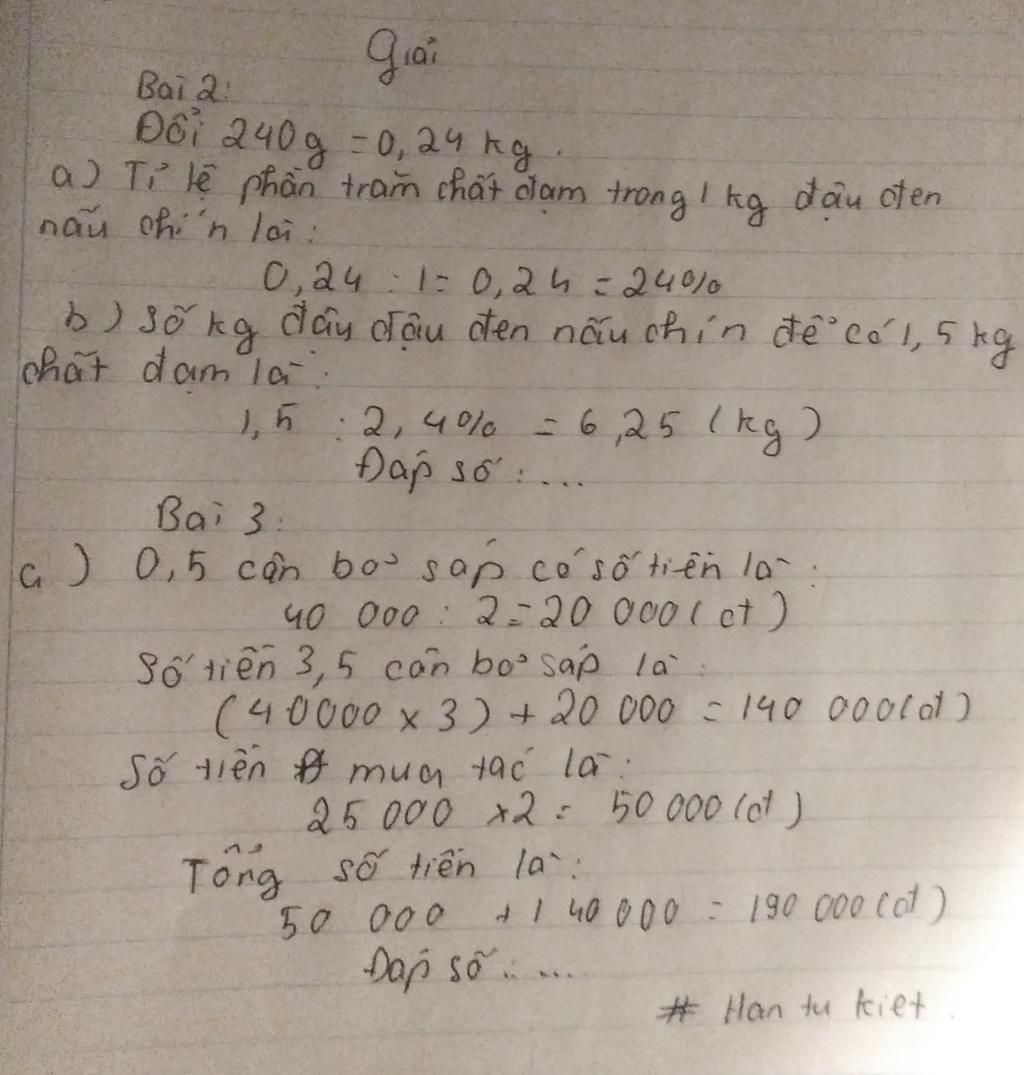 Giải
Bài 2:
Đổi 240g = 0,24 kg.
a) Tỉ lệ phần trăm chất đạm trong 1 kg đậu đen
nấu chín là:
0,24 : 1 = 0,24 = 24%
b) Số kg đấu đậu đen nấu chín để có 1,5 kg
chất đạm là:
1,5 : 2,4% = 6,25 (kg)
Đáp số: ...
Bài 3:
a) 0,5 cân bơ sáp có số tiền là:
40 000 : 2 = 20 000 (đ)
Số tiền 3,5 cân bơ sáp là:
(40000 x 3) + 20 000 = 140 000 (đ)
Số tiền mua tác là:
25 000 x 2 = 50 000 (đ)
Tổng số tiền là:
50 000 + 140 000 = 190 000 (đ)
Đáp số: ...
# Han tu kiet.